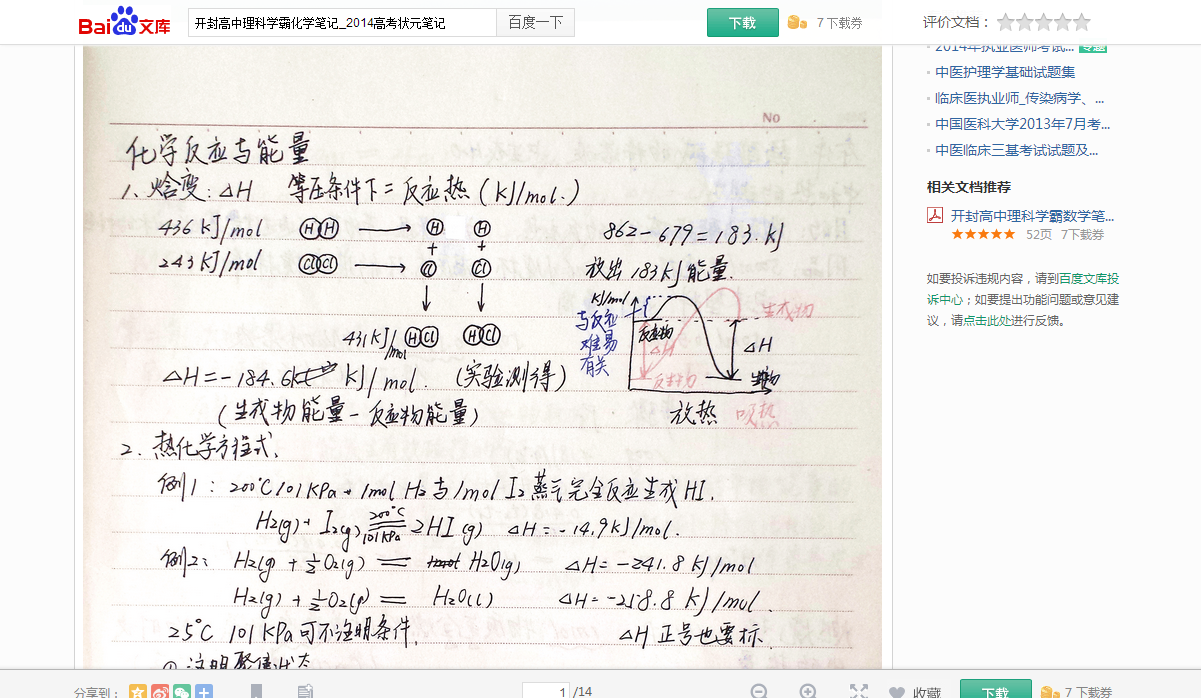 Bai du 文库
开封高中理科学霸化学笔记_2014高考状元笔记
百度一下
下载
7下载券
评价文档：
2014年执业医师考试... 专题
中医护理学基础试题集
临床医执业师_传染病学、...
中国医科大学2013年7月考...
中医临床三基考试试题及...
相关文档推荐
开封高中理科学霸数学笔...
52页 7下载券
如要投诉违规内容，请到百度文库投
诉中心；如要提出功能问题或意见建
议，请点击此处进行反馈。
No
化学反应与能量
1、焓变：△H 等压条件下=反应热（KJ/mol.）
436 KJ/mol H H → H H
862-679=183.KJ
+ +
243 KJ/mol Cl Cl → Cl Cl
放出183KJ能量.
KJ/mol
与反应
难易
有关
反应物
生成物
△H
△H
反应物
生成物
431KJ/mol H Cl H Cl
△H=-184.6 KJ/mol. (实验测得)
(生成物能量-反应物能量)
放热 吸热
2. 热化学方程式.
例1：200℃ 101KPa 1mol H2与1mol I2蒸气完全反应生成HI.
H2(g)+I2(g) 200℃ 101KPa 2HI(g) △H=-14.9KJ/mol.
例2：H2(g)+½O2(g)= H2O(g) △H=-241.8KJ/mol
H2(g)+½O2(g)= H2O(l) △H=-258.8 KJ/mol.
25℃ 101KPa可不注明条件. △H正号也要标.
① 注明聚集状态
分享到：
1 /14
收藏
下载
7下载券